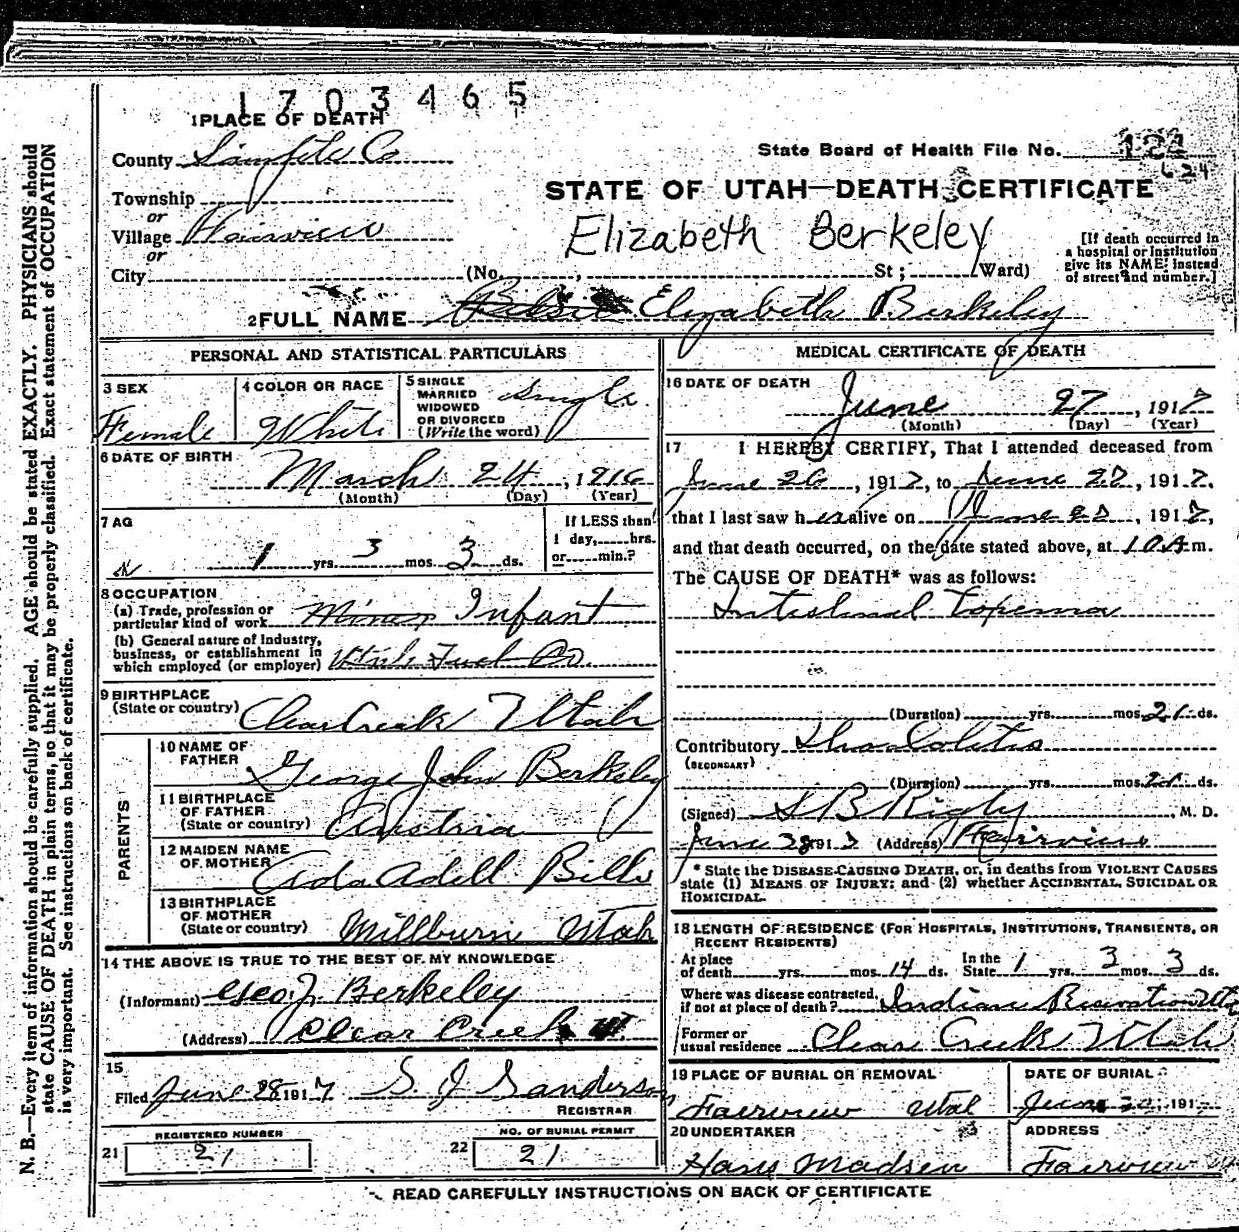 1703465
1 PLACE OF DEATH
County Sanpete Co
State Board of Health File No. 121
624
Township
or
Village Fairview
or
City
STATE OF UTAH—DEATH CERTIFICATE
Elizabeth Berkeley
(No. , St ; Ward)
[If death occurred in
a hospital or institution
give its NAME instead
of street and number.]
2 FULL NAME Elsie Elizabeth Berkeley
PERSONAL AND STATISTICAL PARTICULARS
3 SEX
Female
4 COLOR OR RACE
White
5 SINGLE
MARRIED
WIDOWED
OR DIVORCED
(Write the word)
Single
6 DATE OF BIRTH
March 24, 1916
(Month) (Day) (Year)
7 AG
1 yrs. 3 mos. 3 ds.
If LESS than
1 day, hrs.
or min.?
8 OCCUPATION
(a) Trade, profession or
particular kind of work Miner Infant
(b) General nature of industry,
business, or establishment in
which employed (or employer) Utah Fuel Co.
9 BIRTHPLACE
(State or country) Clear Creek Utah
PARENTS
10 NAME OF
FATHER George John Berkeley
11 BIRTHPLACE
OF FATHER
(State or country) Austria
12 MAIDEN NAME
OF MOTHER Ada Adell Bills
13 BIRTHPLACE
OF MOTHER
(State or country) Millburn Utah
14 THE ABOVE IS TRUE TO THE BEST OF MY KNOWLEDGE
(Informant) Geo. J. Berkeley
(Address) Clear Creek Ut.
15
Filed June 28 1917 S. J. Sanderson
REGISTRAR
21 REGISTERED NUMBER
21
22 NO. OF BURIAL PERMIT
21
MEDICAL CERTIFICATE OF DEATH
16 DATE OF DEATH
June 27, 1917
(Month) (Day) (Year)
17 I HEREBY CERTIFY, That I attended deceased from
June 26, 1917, to June 27, 1917,
that I last saw her alive on June, 1917,
and that death occurred, on the date stated above, at 10 A m.
The CAUSE OF DEATH* was as follows:
Intestinal Toxemia
(Duration) yrs. mos. 21 ds.
Contributory Colitis
(SECONDARY)
(Duration) yrs. mos. 21 ds.
(Signed) S B Rigby, M. D.
June 28 1917 (Address) Fairview
* State the DISEASE CAUSING DEATH, or, in deaths from VIOLENT CAUSES
state (1) MEANS OF INJURY; and (2) whether ACCIDENTAL, SUICIDAL OR
HOMICIDAL.
18 LENGTH OF RESIDENCE (FOR HOSPITALS, INSTITUTIONS, TRANSIENTS, OR
RECENT RESIDENTS)
At place
of death yrs. mos. 14 ds.
In the
State 1 yrs. 3 mos. 3 ds.
Where was disease contracted,
if not at place of death? Indian Reservation Uta
Former or
usual residence Clear Creek Utah
19 PLACE OF BURIAL OR REMOVAL
Fairview Utah
DATE OF BURIAL
June, 1917
20 UNDERTAKER
Hans Madsen
ADDRESS
Fairview
READ CAREFULLY INSTRUCTIONS ON BACK OF CERTIFICATE
N. B.—Every item of information should be carefully supplied. AGE should be stated EXACTLY. PHYSICIANS should
state CAUSE OF DEATH in plain terms, so that it may be properly classified. Exact statement of OCCUPATION
is very important. See instructions on back of certificate.